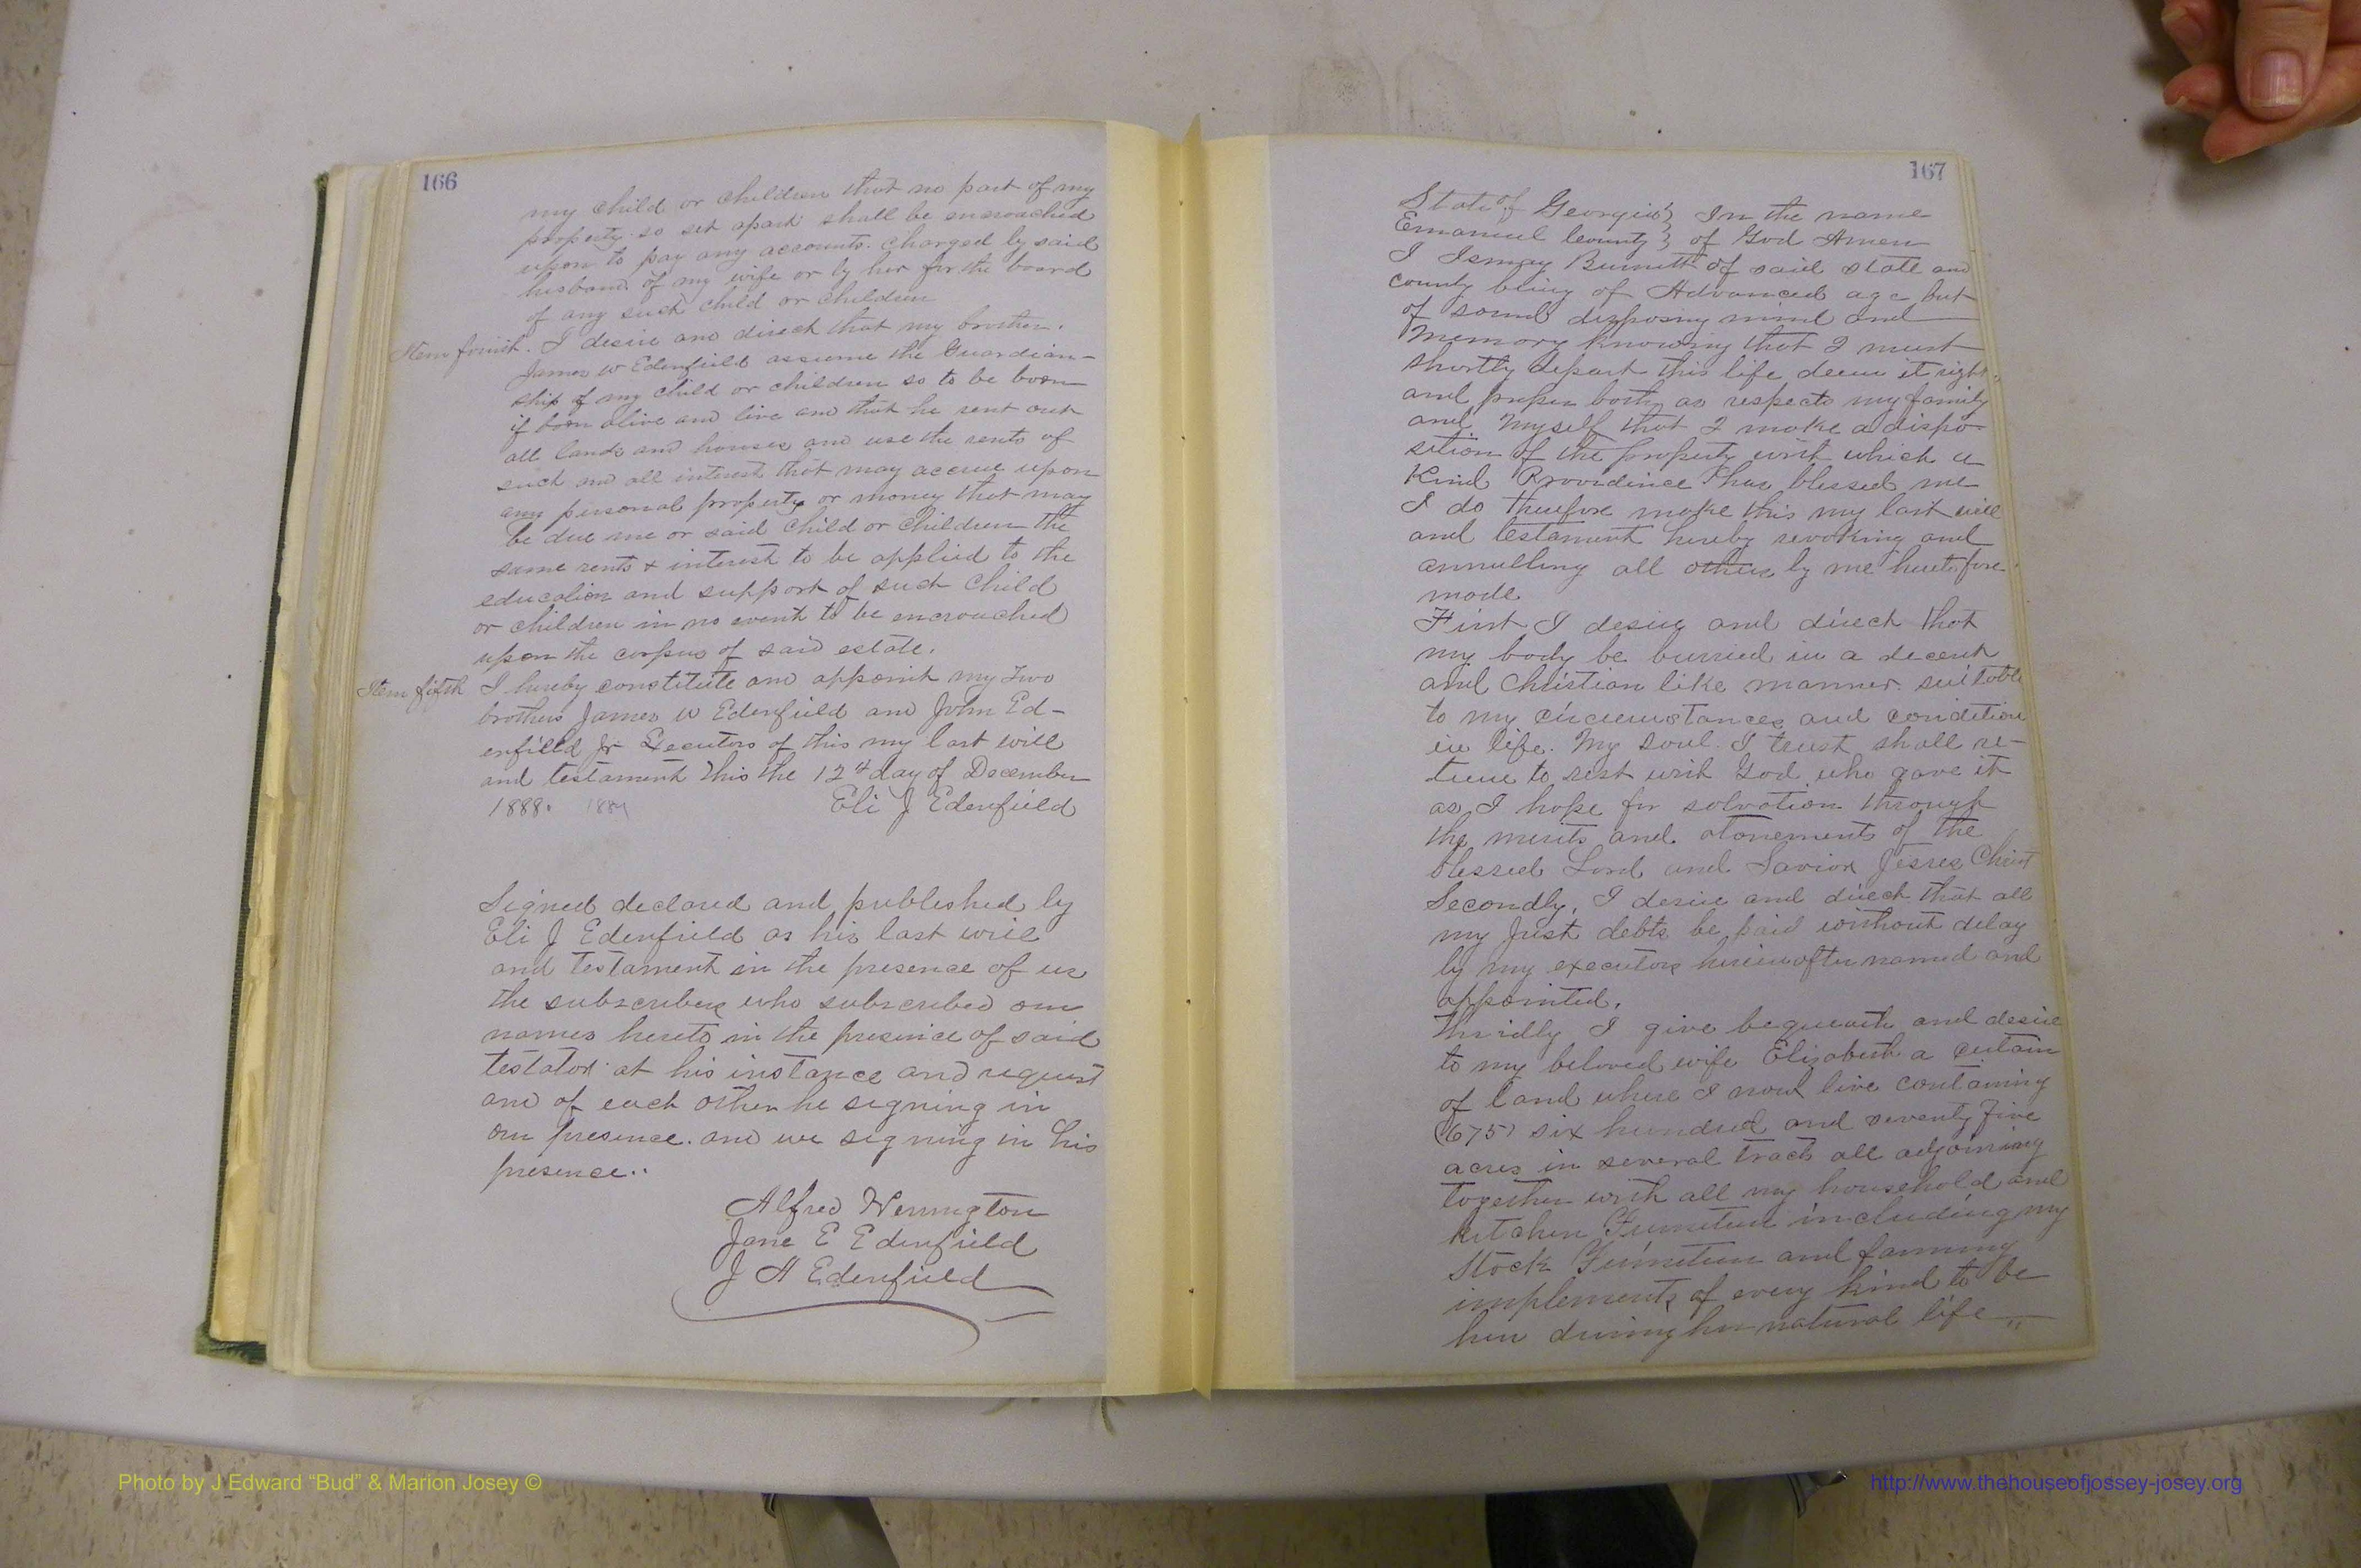 166
my child or children that no part of my
property so set apart shall be encroached
upon to pay any accounts charged by said
husband of my wife or by her for the board
of any such child or children
Item fourth. I desire and direct that my brother.
James W Edenfield assume the Guardian-
ship of my child or children so to be born
if born alive and live and that he rent out
all lands and houses and use the rents of
such and all interest that may accrue upon
any personal property or money that may
be due me or said child or children the
same rents & interest to be applied to the
education and support of such child
or children in no event to be encroached
upon the corpus of said estate.
Item fifth I hereby constitute and appoint my two
brothers James W Edenfield and John Ed-
enfield Jr Executors of this my last will
and testament This the 12th day of December
1888. 1884
Eli J Edenfield
Signed declared and published by
Eli J Edenfield as his last will
and testament in the presence of us
the subscribers who subscribed our
names hereto in the presence of said
testator at his instance and request
and of each other he signing in
our presence. and we signing in his
presence..
Alfred Herrington
Jane E Edenfield
J H Edenfield
167
State of Georgia } In the name
Emanuel County } of God Amen
I Burnett of said state and
county being of Advanced age but
of sound disposing mind and
Memory Knowing that I must
shortly depart this life deem it right
and proper both as respects my family
and Myself that I make a dispo-
sition of the property with which a
Kind Providence has blessed me
I do therefore make this my last will
and testament hereby revoking and
annulling all others by me heretofore
made
First I desire and direct that
my body be burried in a decent
and Christian like manner suitable
to my circumstances and condition
in life. My soul I trust shall re-
turn to rest with God who gave it
as I hope for salvation through
the merits and atonement of the
blessed Lord and Savior Jesus Christ
Secondly, I desire and direct that all
my Just debts be paid without delay
by my executors hereinafter named and
appointed.
Thridly I give bequeath and desire
to my beloved wife Elizabeth a certain
of land where I now live containing
(675) six hundred and seventy five
acres in several tracts all adjoining
together with all my household and
kitchen Furniture including my
Stock Furniture and farming
implements of every kind to be
hers during her natural life
Photo by J Edward “Bud” & Marion Josey ©
http://www.thehouseofjossey-josey.org